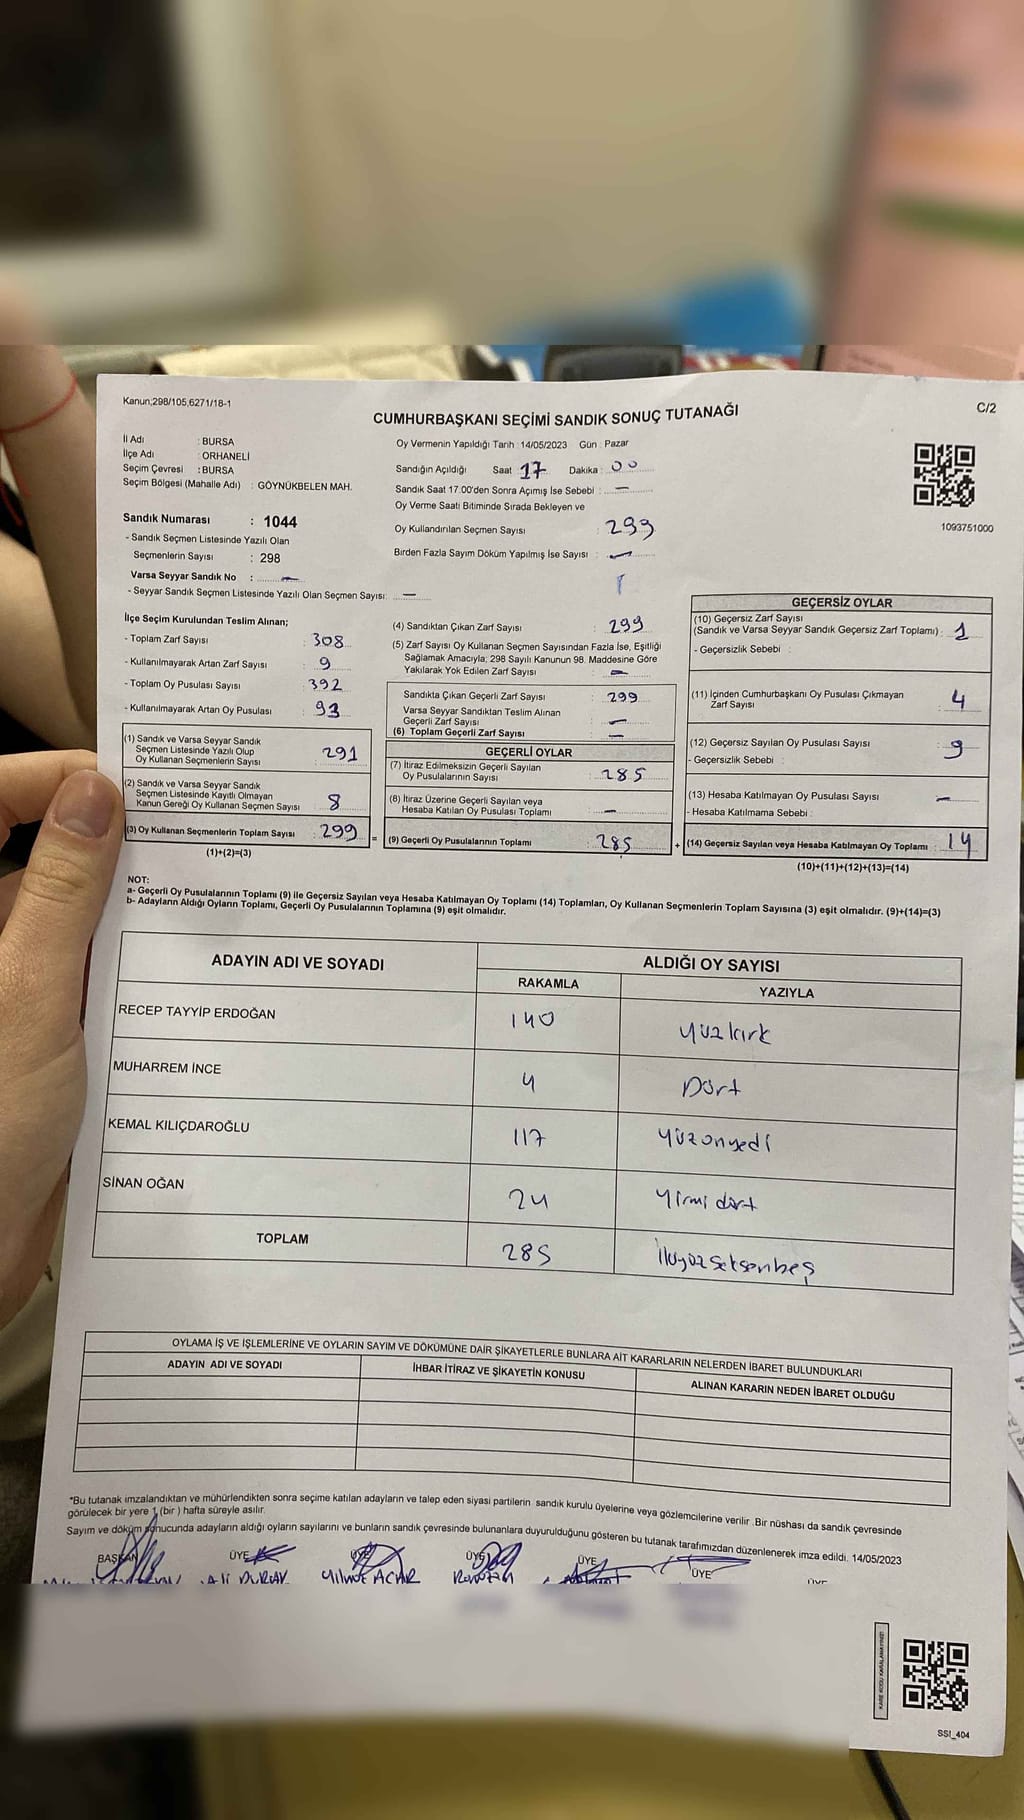 Kanun;298/105,6271/18-1
C/2
CUMHURBAŞKANI SEÇİMİ SANDIK SONUÇ TUTANAĞI
İl Adı : BURSA
İlçe Adı : ORHANELİ
Seçim Çevresi : BURSA
Seçim Bölgesi (Mahalle Adı) : GÖYNÜKBELEN MAH.
Sandık Numarası : 1044
- Sandık Seçmen Listesinde Yazılı Olan
Seçmenlerin Sayısı : 298
Varsa Seyyar Sandık No : —
- Seyyar Sandık Seçmen Listesinde Yazılı Olan Seçmen Sayısı: —
Oy Vermenin Yapıldığı Tarih :14/05/2023 Gün : Pazar
Sandığın Açıldığı Saat 17 Dakika : 00
Sandık Saat 17.00'den Sonra Açımış İse Sebebi : —
Oy Verme Saati Bitiminde Sırada Bekleyen ve
Oy Kullandırılan Seçmen Sayısı : 299
Birden Fazla Sayım Döküm Yapılmış İse Sayısı : —
1093751000
İlçe Seçim Kurulundan Teslim Alınan;
- Toplam Zarf Sayısı : 308
- Kullanılmayarak Artan Zarf Sayısı : 9
- Toplam Oy Pusulası Sayısı : 392
- Kullanılmayarak Artan Oy Pusulası : 93
(1) Sandık ve Varsa Seyyar Sandık
Seçmen Listesinde Yazılı Olup
Oy Kullanan Seçmenlerin Sayısı : 291
(2) Sandık ve Varsa Seyyar Sandık
Seçmen Listesinde Kayıtlı Olmayan
Kanun Gereği Oy Kullanan Seçmen Sayısı : 8
(3) Oy Kullanan Seçmenlerin Toplam Sayısı : 299
(1)+(2)=(3)
(4) Sandıktan Çıkan Zarf Sayısı : 299
(5) Zarf Sayısı Oy Kullanan Seçmen Sayısından Fazla İse, Eşitliği
Sağlamak Amacıyla; 298 Sayılı Kanunun 98. Maddesine Göre
Yakılarak Yok Edilen Zarf Sayısı : —
Sandıkta Çıkan Geçerli Zarf Sayısı : 299
Varsa Seyyar Sandıktan Teslim Alınan
Geçerli Zarf Sayısı : —
(6) Toplam Geçerli Zarf Sayısı : —
GEÇERLİ OYLAR
(7) İtiraz Edilmeksizin Geçerli Sayılan
Oy Pusulalarının Sayısı : 285
(8) İtiraz Üzerine Geçerli Sayılan veya
Hesaba Katılan Oy Pusulası Toplamı : —
= (9) Geçerli Oy Pusulalarının Toplamı : 285
GEÇERSİZ OYLAR
(10) Geçersiz Zarf Sayısı
(Sandık ve Varsa Seyyar Sandık Geçersiz Zarf Toplamı) : 1
- Geçersizlik Sebebi :
(11) İçinden Cumhurbaşkanı Oy Pusulası Çıkmayan
Zarf Sayısı : 4
(12) Geçersiz Sayılan Oy Pusulası Sayısı : 9
- Geçersizlik Sebebi :
(13) Hesaba Katılmayan Oy Pusulası Sayısı : —
- Hesaba Katılmama Sebebi :
+ (14) Geçersiz Sayılan veya Hesaba Katılmayan Oy Toplamı : 14
(10)+(11)+(12)+(13)=(14)
NOT:
a- Geçerli Oy Pusulalarının Toplamı (9) ile Geçersiz Sayılan veya Hesaba Katılmayan Oy Toplamı (14) Toplamları, Oy Kullanan Seçmenlerin Toplam Sayısına (3) eşit olmalıdır. (9)+(14)=(3)
b- Adayların Aldığı Oyların Toplamı, Geçerli Oy Pusulalarının Toplamına (9) eşit olmalıdır.
ADAYIN ADI VE SOYADI ALDIĞI OY SAYISI
RAKAMLA YAZIYLA
RECEP TAYYİP ERDOĞAN 140 yüzkırk
MUHARREM İNCE 4 Dört
KEMAL KILIÇDAROĞLU 117 yüzonyedi
SİNAN OĞAN 24 yirmi dört
TOPLAM 285 ikiyüzseksenbeş
OYLAMA İŞ VE İŞLEMLERİNE VE OYLARIN SAYIM VE DÖKÜMÜNE DAİR ŞİKAYETLERLE BUNLARA AİT KARARLARIN NELERDEN İBARET BULUNDUKLARI
ADAYIN ADI VE SOYADI İHBAR İTİRAZ VE ŞİKAYETİN KONUSU ALINAN KARARIN NEDEN İBARET OLDUĞU
*Bu tutanak imzalandıktan ve mühürlendikten sonra seçime katılan adayların ve talep eden siyasi partilerin sandık kurulu üyelerine veya gözlemcilerine verilir .Bir nüshası da sandık çevresinde
görülecek bir yere 1 (bir ) hafta süreyle asılır.
Sayım ve döküm sonucunda adayların aldığı oyların sayılarını ve bunların sandık çevresinde bulunanlara duyurulduğunu gösteren bu tutanak tarafımızdan düzenlenerek imza edildi. 14/05/2023
BAŞKAN ÜYE ÜYE ÜYE ÜYE ÜYE ÜYE
ALİ DURAK ACAR
SSI_404